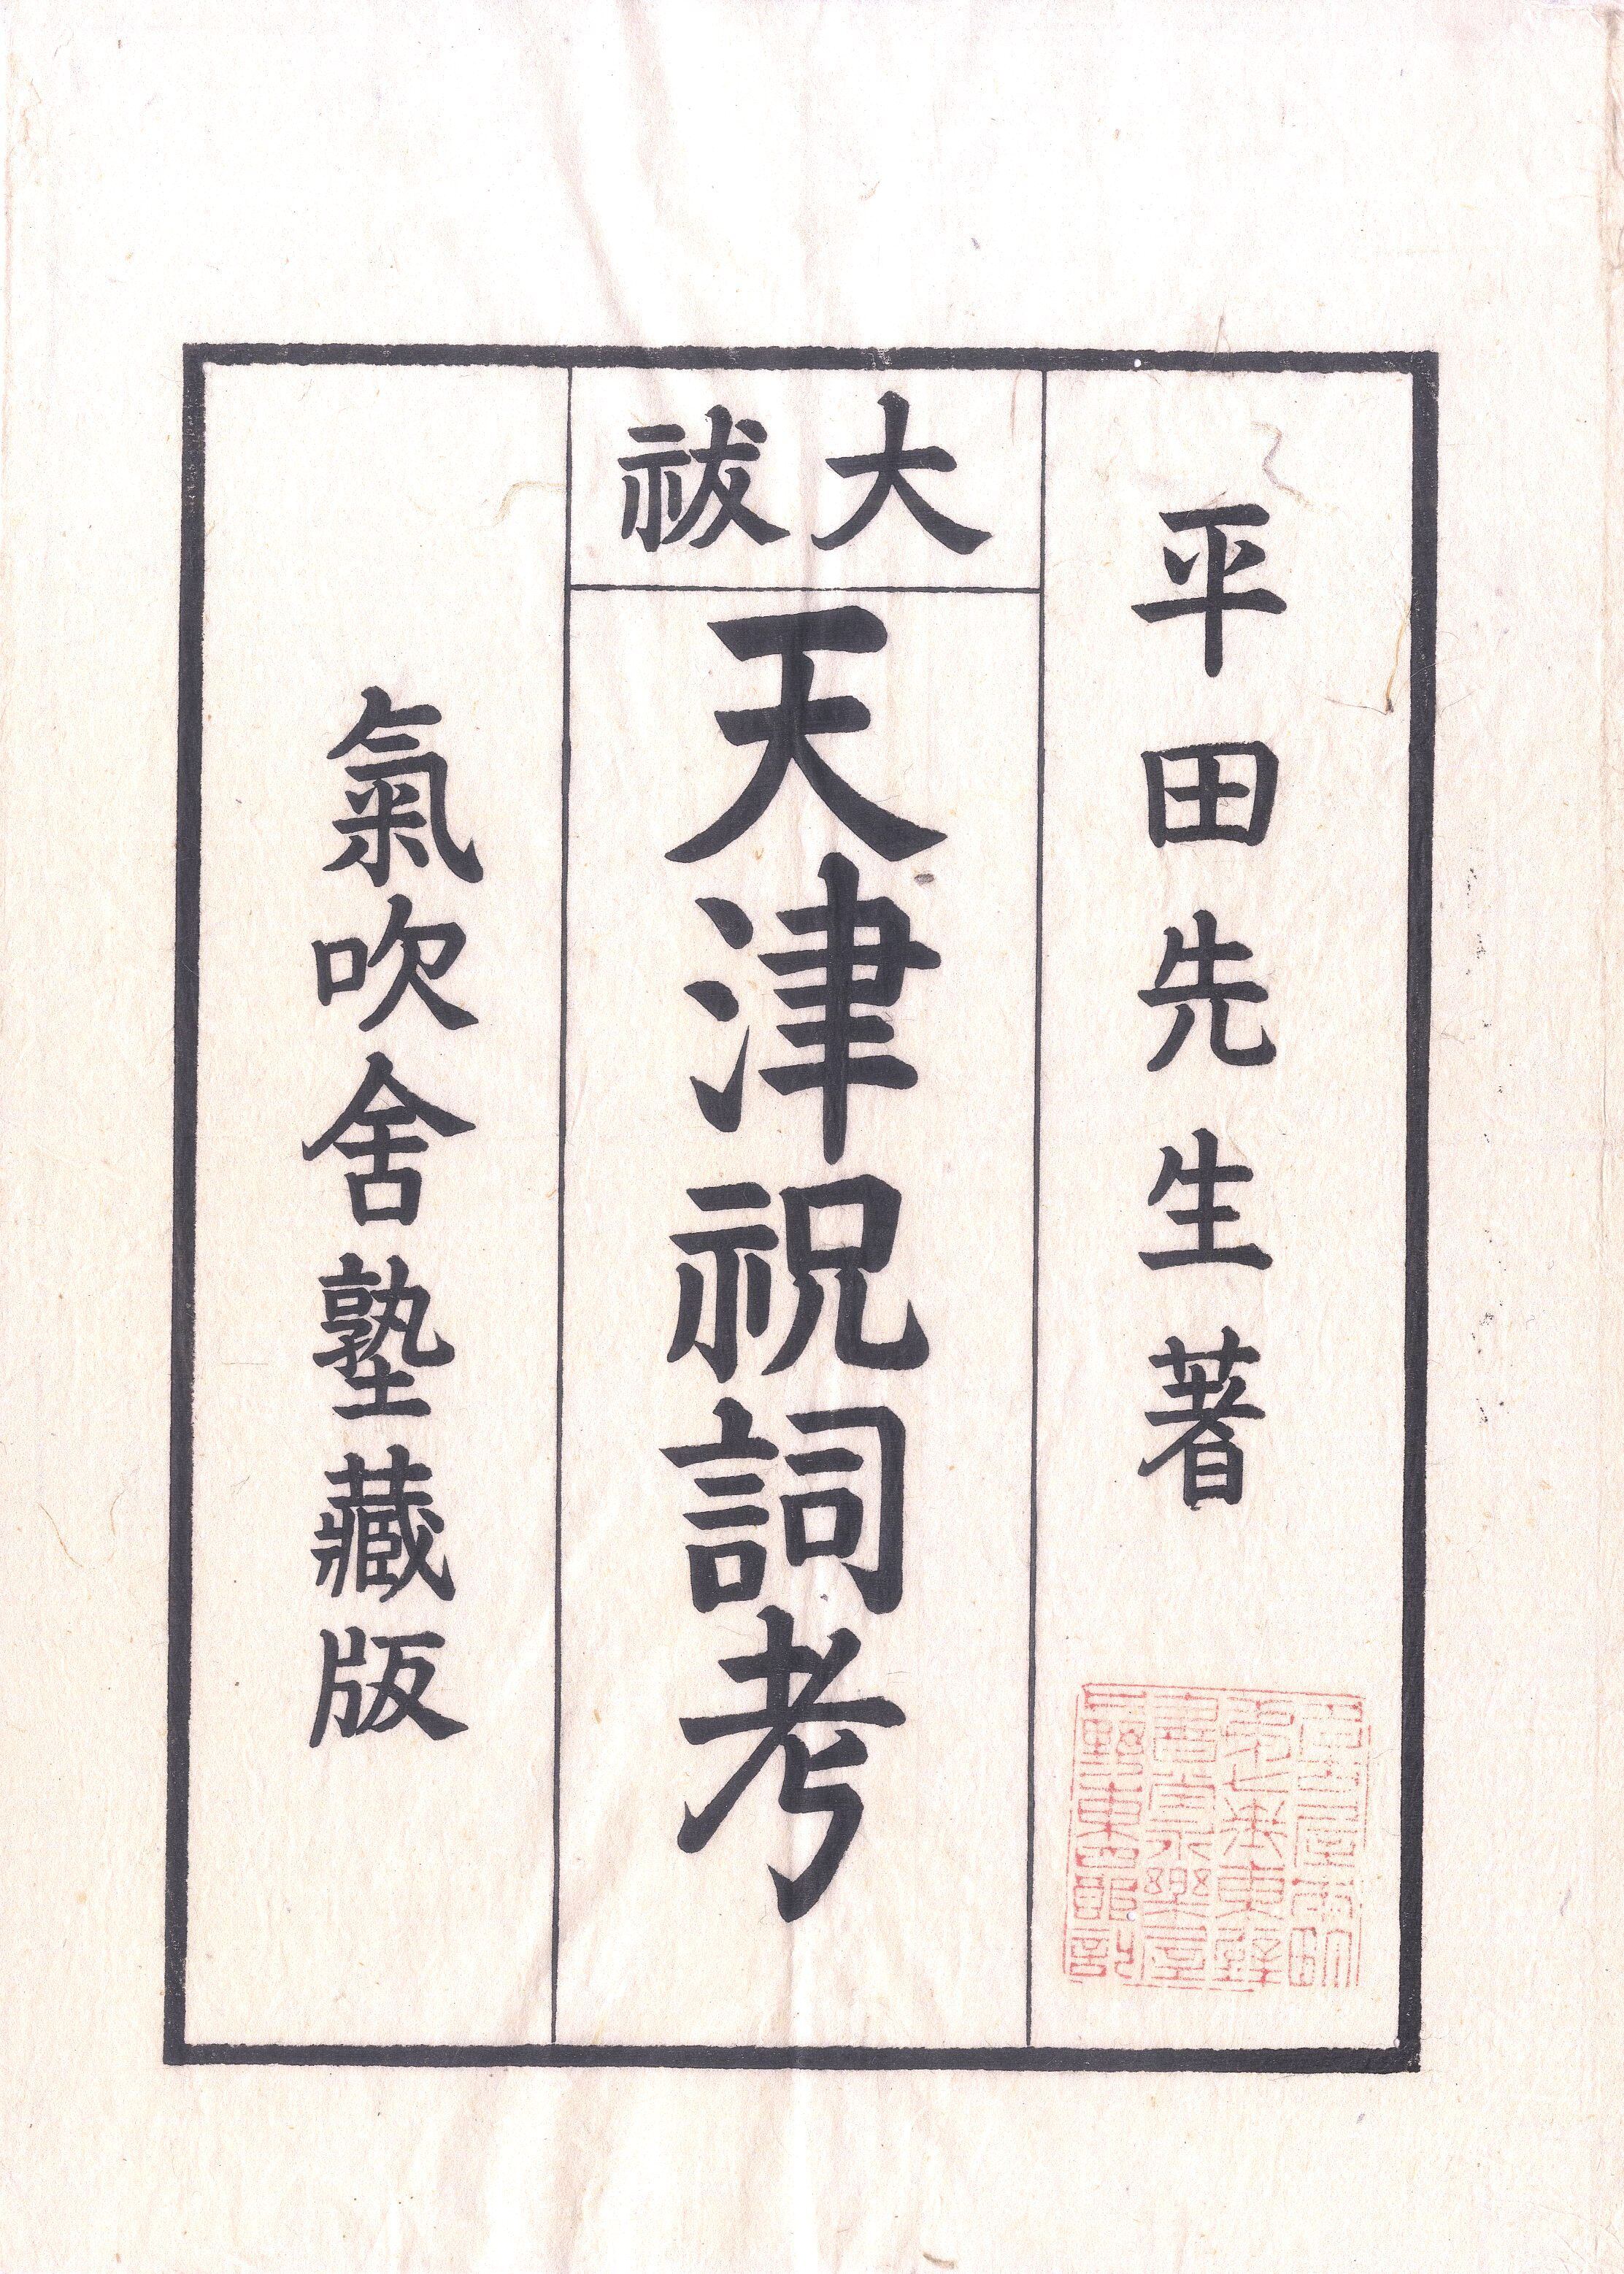 平田先生著
大祓
天津祝詞考
氣吹舍塾藏版